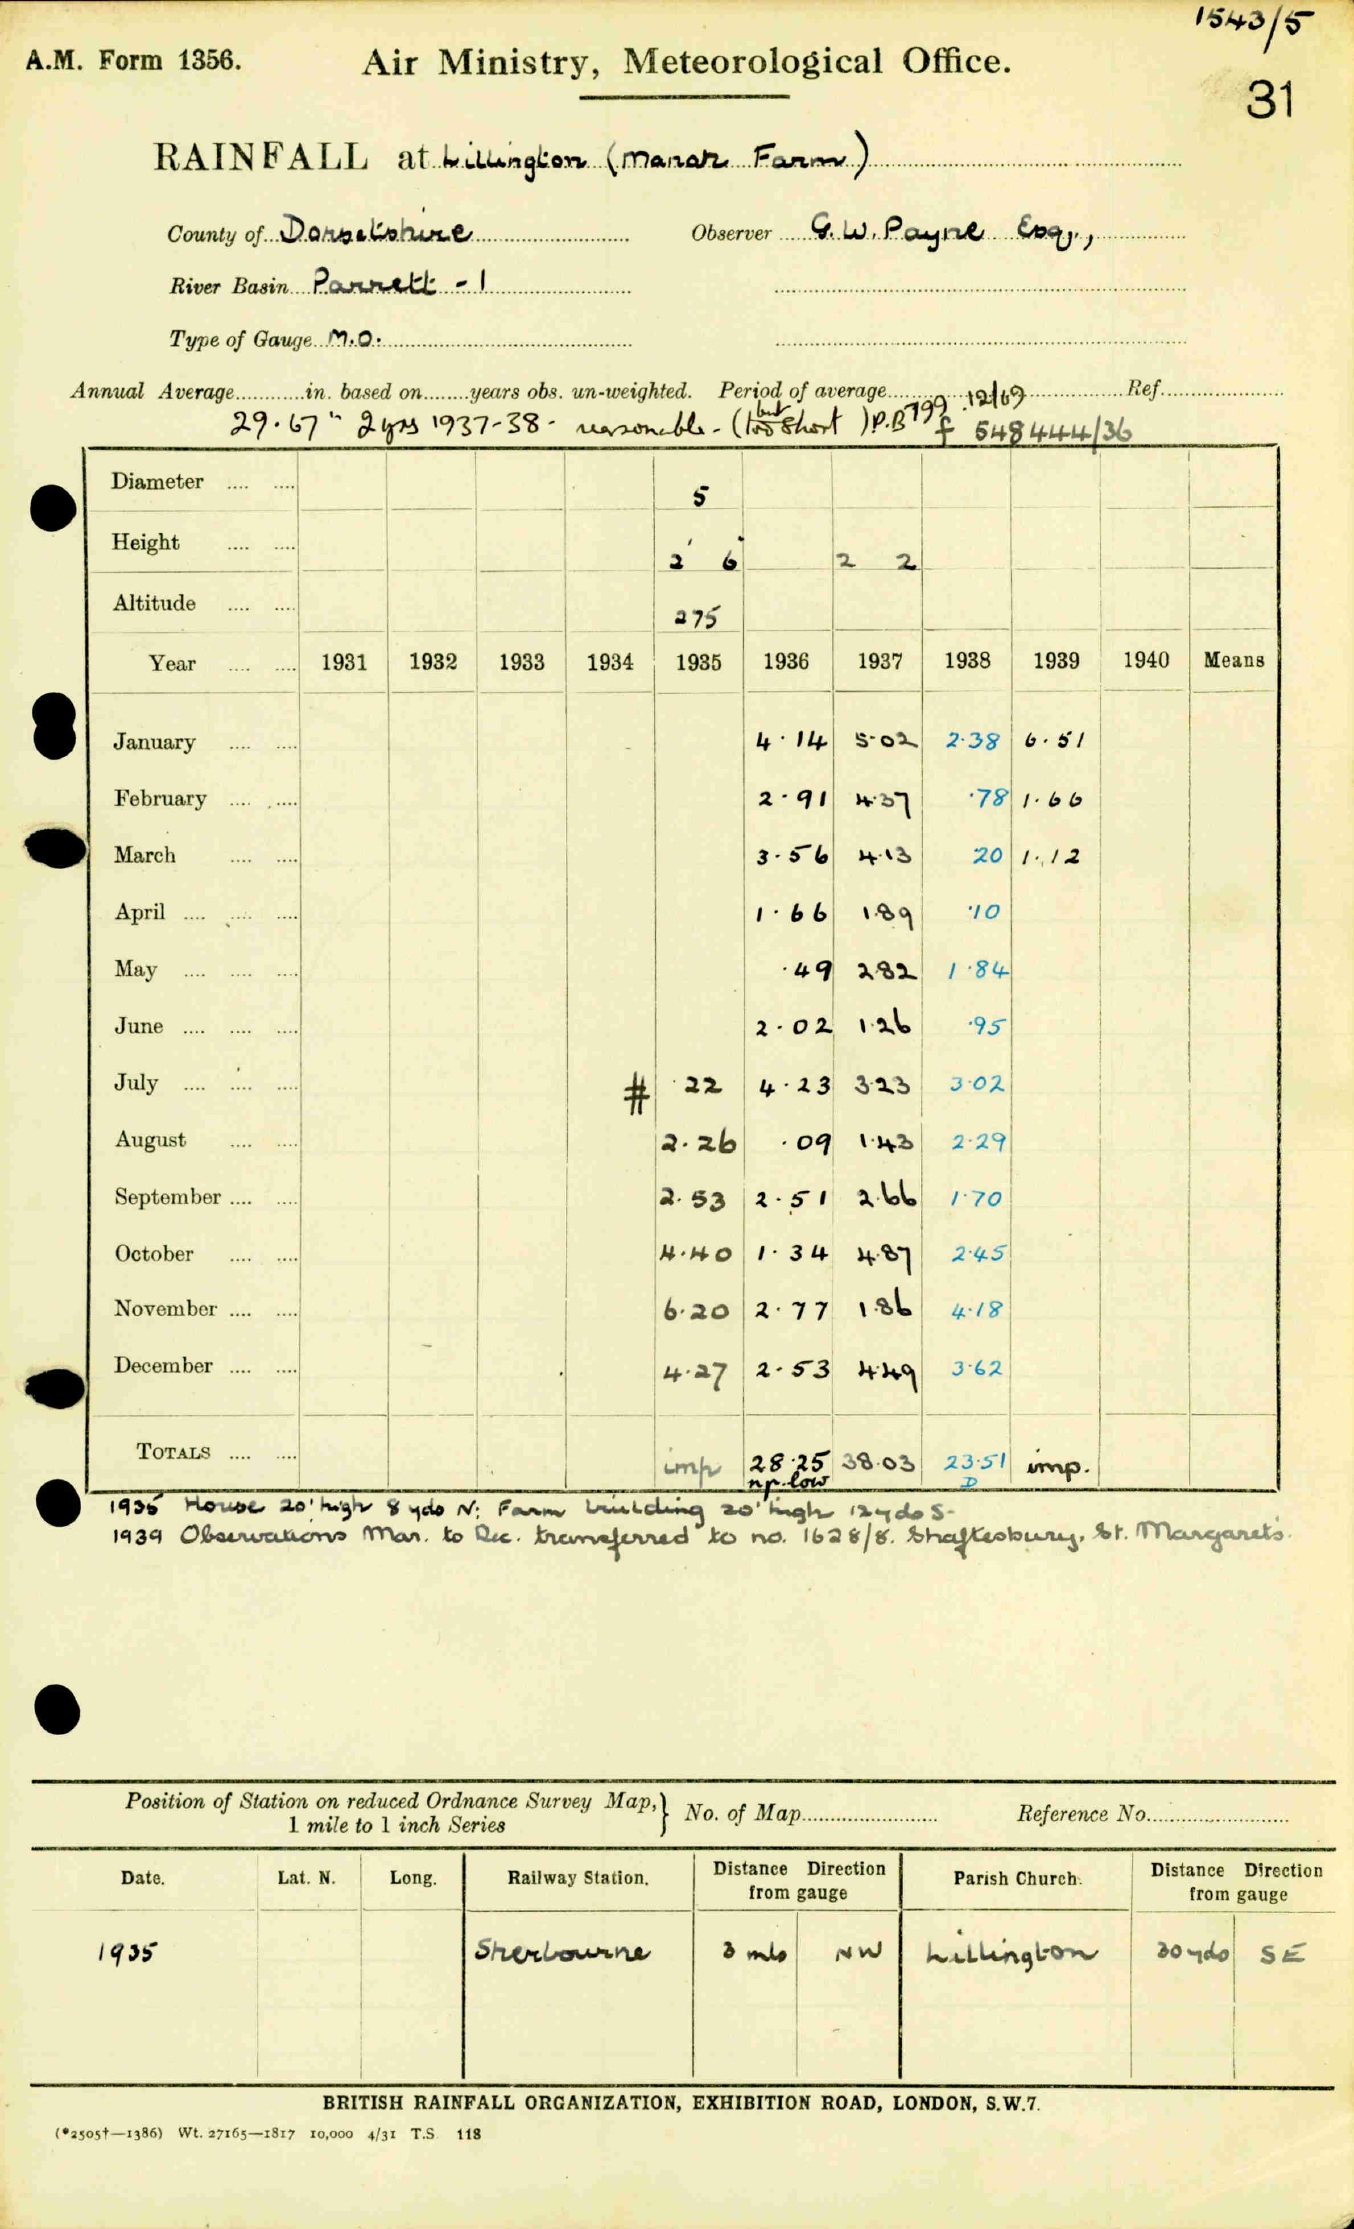 1543/5
A.M. Form 1356. Air Ministry, Meteorological Office.
31
RAINFALL at Lillington (Manor Farm)
County of Dorsetshire Observer G.W. Payne Esq.,
River Basin Parrett - 1
Type of Gauge M.O.
Annual Average in. based on years obs. un-weighted. Period of average Ref.
29.67" 2 yrs 1937-38 - reasonable - (but too short) P.B 799 12/69
f 548444/36
Diameter 5
Height 2' 6" 2 2
Altitude 275
Year 1931 1932 1933 1934 1935 1936 1937 1938 1939 1940 Means
January 4.14 5.02 2.38 6.51
February 2.91 4.37 .78 1.66
March 3.56 4.13 20 1.12
April 1.66 1.89 .10
May .49 2.82 1.84
June 2.02 1.26 .95
July # .22 4.23 3.23 3.02
August 2.26 .09 1.43 2.29
September 2.53 2.51 2.66 1.70
October 4.40 1.34 4.87 2.45
November 6.20 2.77 1.86 4.18
December 4.27 2.53 4.49 3.62
TOTALS imp 28.25 38.03 23.51 imp.
np. low D
1935 House 20' high 8 yds N: Farm building 20' high 12 yds S-
1939 Observations Mar. to Dec. transferred to no. 1628/8. Shaftesbury, St. Margaret's.
Position of Station on reduced Ordnance Survey Map, } No. of Map Reference No.
1 mile to 1 inch Series
Date. Lat. N. Long. Railway Station. Distance Direction from gauge Parish Church. Distance Direction from gauge
1935 Sherbourne 3 mls NW Lillington 30 yds SE
BRITISH RAINFALL ORGANIZATION, EXHIBITION ROAD, LONDON, S.W.7.
(*2505†—1386) Wt. 27165—1817 10,000 4/31 T.S. 118